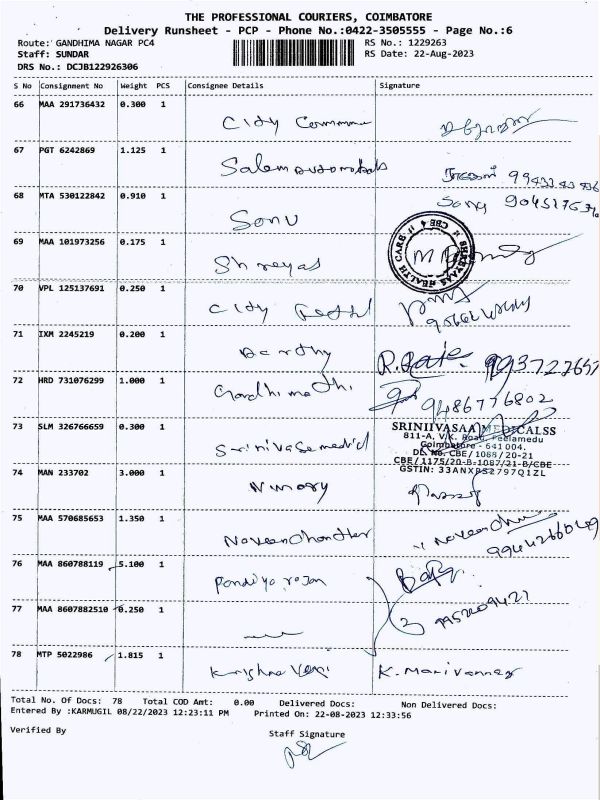 THE PROFESSIONAL COURIERS, COIMBATORE
Delivery Runsheet - PCP - Phone No.:0422-3505555 - Page No.:6
Route: GANDHIMA NAGAR PC4 RS No.: 1229263
Staff: SUNDAR RS Date: 22-Aug-2023
DRS No.: DCJB122926306
S No Consignment No Weight PCS Consignee Details Signature
66 MAA 291736432 0.300 1
City
67 PGT 6242869 1.125 1
Salem automobals
68 MTA 530122842 0.910 1
Sonu
69 MAA 101973256 0.175 1
Shreyas
SHREYAAS HEALTH CARE CBE 4
70 VPL 125137691 0.250 1
City
71 IXM 2245219 0.200 1
72 HRD 731076299 1.000 1
Gandhimathi 9486776802
73 SLM 326766659 0.300 1
SRINIIVASAA MEDICALSS
811-A, V.K. Road, Peelamedu
Coimbatore - 641 004.
DL No. CBE/1088/20-21
CBE/1175/20-B-1087/21-B/CBE
GSTIN: 33ANXPS2797Q1ZL
Srinivasa medical
74 MAN 233702 3.000 1
75 MAA 570685653 1.350 1
Naveen Chander
76 MAA 860788119 5.100 1
Pandiyarajan
77 MAA 8607882510 0.250 1
78 MTP 5022986 1.815 1
Krishnaveni K. Marivannan
Total No. Of Docs: 78 Total COD Amt: 0.00 Delivered Docs: Non Delivered Docs:
Entered By :KARMUGIL 08/22/2023 12:23:11 PM Printed On: 22-08-2023 12:33:56
Verified By Staff Signature